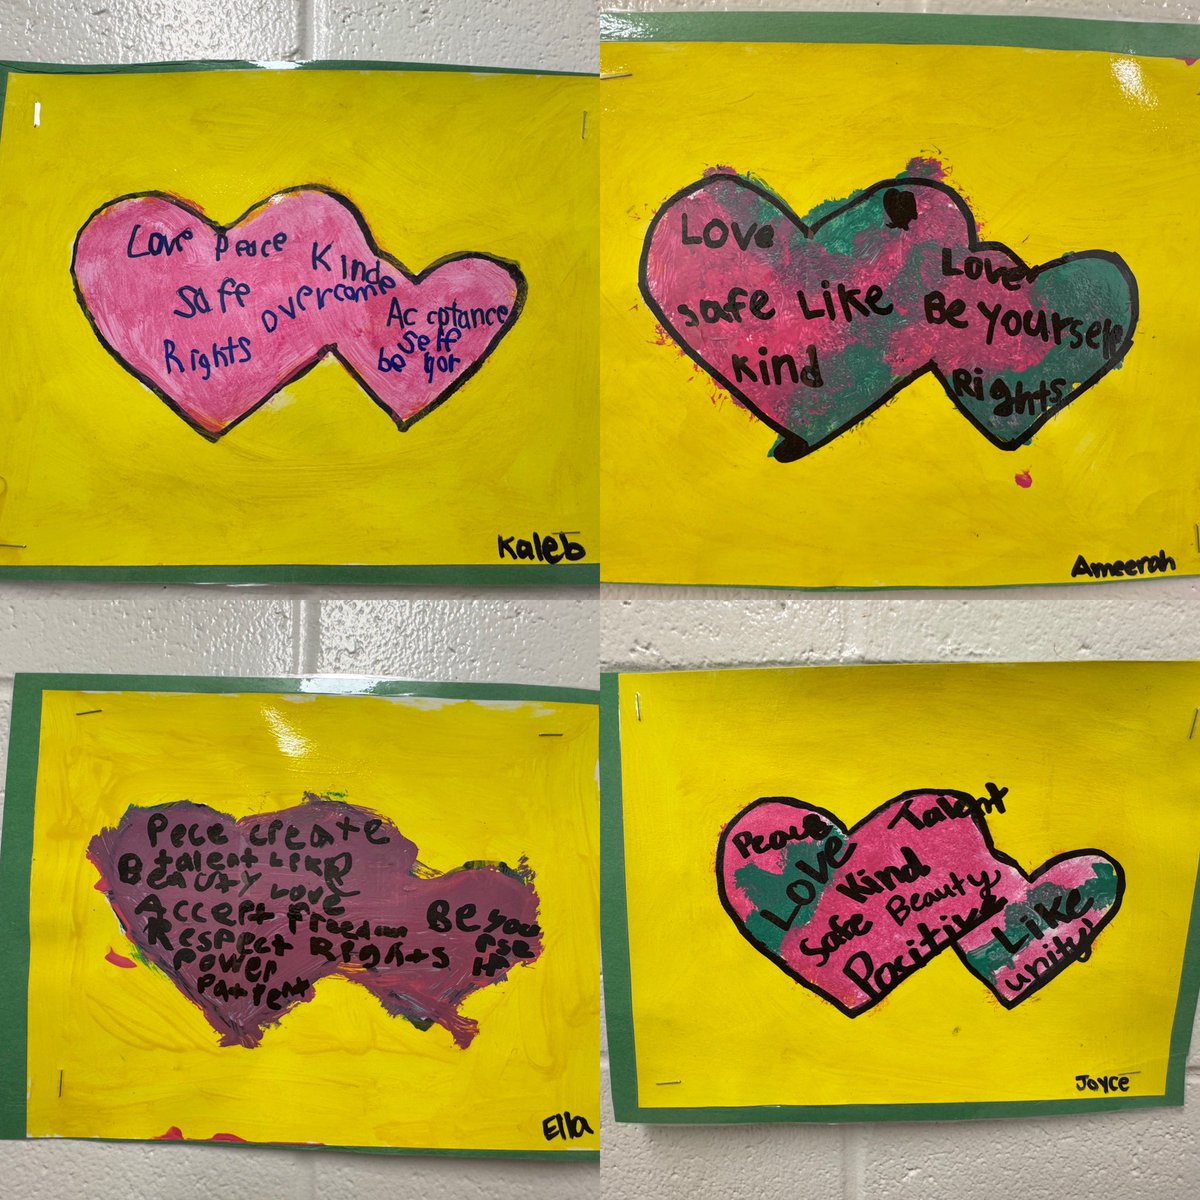 Love Peace
Kind
Safe overcome
Rights
Acceptance
self
be yor
Kaleb
Love
Safe Like
Kind
Lover
Be Yourself
Rights
Ameerah
Pece create
talent Like
Beauty Love
Accept freedom
Respect Rights
Power
Be you
Ella
Peace
Love
Talent
Kind
Safe Beauty
Positive
Like
unity!
Joyce